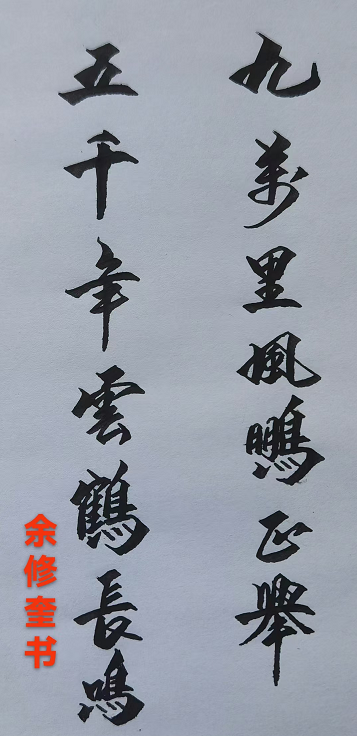 九萬里風鵬正舉
五千年雲鶴長鳴
余修奎书